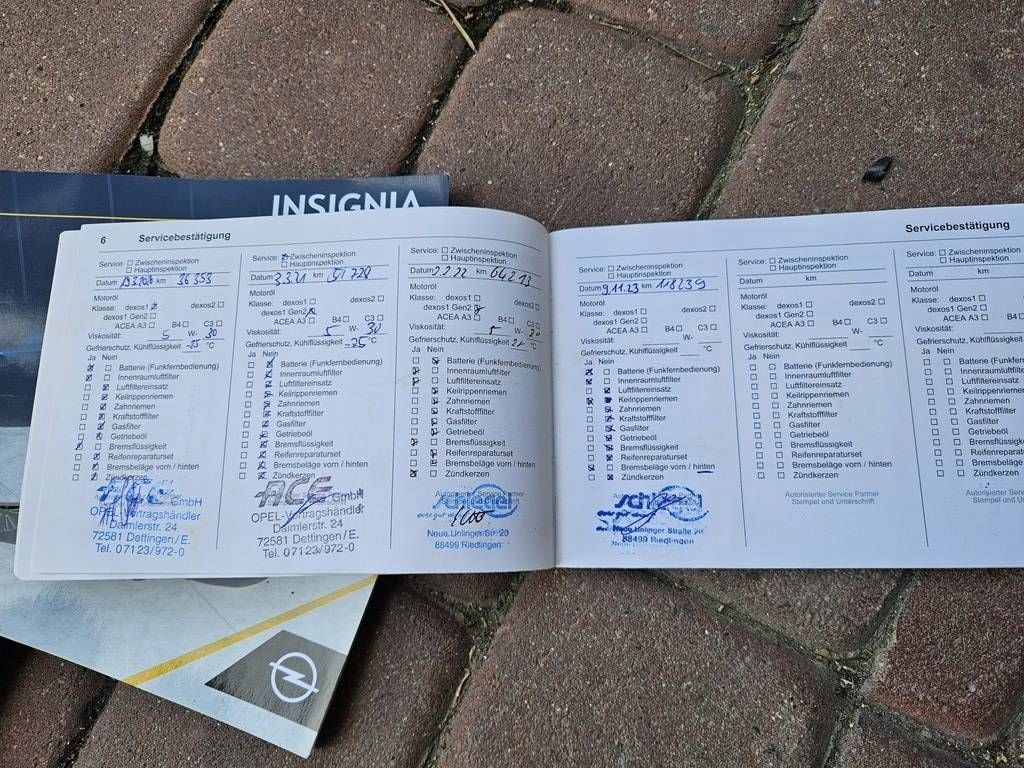 INSIGNIA
6 Servicebestätigung
Service: Zwischeninspektion
Hauptinspektion
Datum km 36 353
Motoröl
Klasse: dexos1 dexos2
dexos1 Gen2
ACEA A3 B4 C3
Viskosität: 5 W- 30
Gefrierschutz, Kühlflüssigkeit -25 °C
Ja Nein
Batterie (Funkfernbedienung)
Innenraumluftfilter
Luftfiltereinsatz
Keilrippenriemen
Zahnriemen
Kraftstofffilter
Gasfilter
Getriebeöl
Bremsflüssigkeit
Reifenreparaturset
Bremsbeläge vorn / hinten
Zündkerzen
ACE GmbH
OPEL-Vertragshändler
Daimlerstr. 24
72581 Dettingen/E.
Tel. 07123/972-0
Service: Zwischeninspektion
Hauptinspektion
Datum 3.3.21 km 51 720
Motoröl
Klasse: dexos1 dexos2
dexos1 Gen2
ACEA A3 B4 C3
Viskosität: 5 W- 30
Gefrierschutz, Kühlflüssigkeit -25 °C
Ja Nein
Batterie (Funkfernbedienung)
Innenraumluftfilter
Luftfiltereinsatz
Keilrippenriemen
Zahnriemen
Kraftstofffilter
Gasfilter
Getriebeöl
Bremsflüssigkeit
Reifenreparaturset
Bremsbeläge vorn / hinten
Zündkerzen
ACE GmbH
OPEL-Vertragshändler
Daimlerstr. 24
72581 Dettingen/E.
Tel. 07123/972-0
Service: Zwischeninspektion
Hauptinspektion
Datum 2.2.22 km 64213
Motoröl
Klasse: dexos1 dexos2
dexos1 Gen2
ACEA A3 B4 C3
Viskosität: 5 W- 30
Gefrierschutz, Kühlflüssigkeit °C
Ja Nein
Batterie (Funkfernbedienung)
Innenraumluftfilter
Luftfiltereinsatz
Keilrippenriemen
Zahnriemen
Kraftstofffilter
Gasfilter
Getriebeöl
Bremsflüssigkeit
Reifenreparaturset
Bremsbeläge vorn / hinten
Zündkerzen
Autorisierter Service Partner
schlegel
Neue Unlinger Str. 20
88499 Riedlingen
Servicebestätigung
Service: Zwischeninspektion
Hauptinspektion
Datum 9.11.23 km 118239
Motoröl
Klasse: dexos1 dexos2
dexos1 Gen2
ACEA A3 B4 C3
Viskosität: W-
Gefrierschutz, Kühlflüssigkeit °C
Ja Nein
Batterie (Funkfernbedienung)
Innenraumluftfilter
Luftfiltereinsatz
Keilrippenriemen
Zahnriemen
Kraftstofffilter
Gasfilter
Getriebeöl
Bremsflüssigkeit
Reifenreparaturset
Bremsbeläge vorn / hinten
Zündkerzen
schlegel
Neue Unlinger Straße 20
88499 Riedlingen
Service: Zwischeninspektion
Hauptinspektion
Datum km
Motoröl
Klasse: dexos1 dexos2
dexos1 Gen2
ACEA A3 B4 C3
Viskosität: W-
Gefrierschutz, Kühlflüssigkeit °C
Ja Nein
Batterie (Funkfernbedienung)
Innenraumluftfilter
Luftfiltereinsatz
Keilrippenriemen
Zahnriemen
Kraftstofffilter
Gasfilter
Getriebeöl
Bremsflüssigkeit
Reifenreparaturset
Bremsbeläge vorn / hinten
Zündkerzen
Autorisierter Service Partner
Stempel und Unterschrift
Service: Zwischeninspektion
Hauptinspektion
Datum km
Motoröl
Klasse: dexos1
dexos1 Gen2
ACEA A3 B4
Viskosität: W-
Gefrierschutz, Kühlflüssigkeit
Ja Nein
Batterie (Funkfernbed
Innenraumluftfilter
Luftfiltereinsatz
Keilrippenriemen
Zahnriemen
Kraftstofffilter
Gasfilter
Getriebeöl
Bremsflüssigkeit
Reifenreparaturset
Bremsbeläge vorn / h
Zündkerzen
Autorisierter Service P
Stempel und Unters